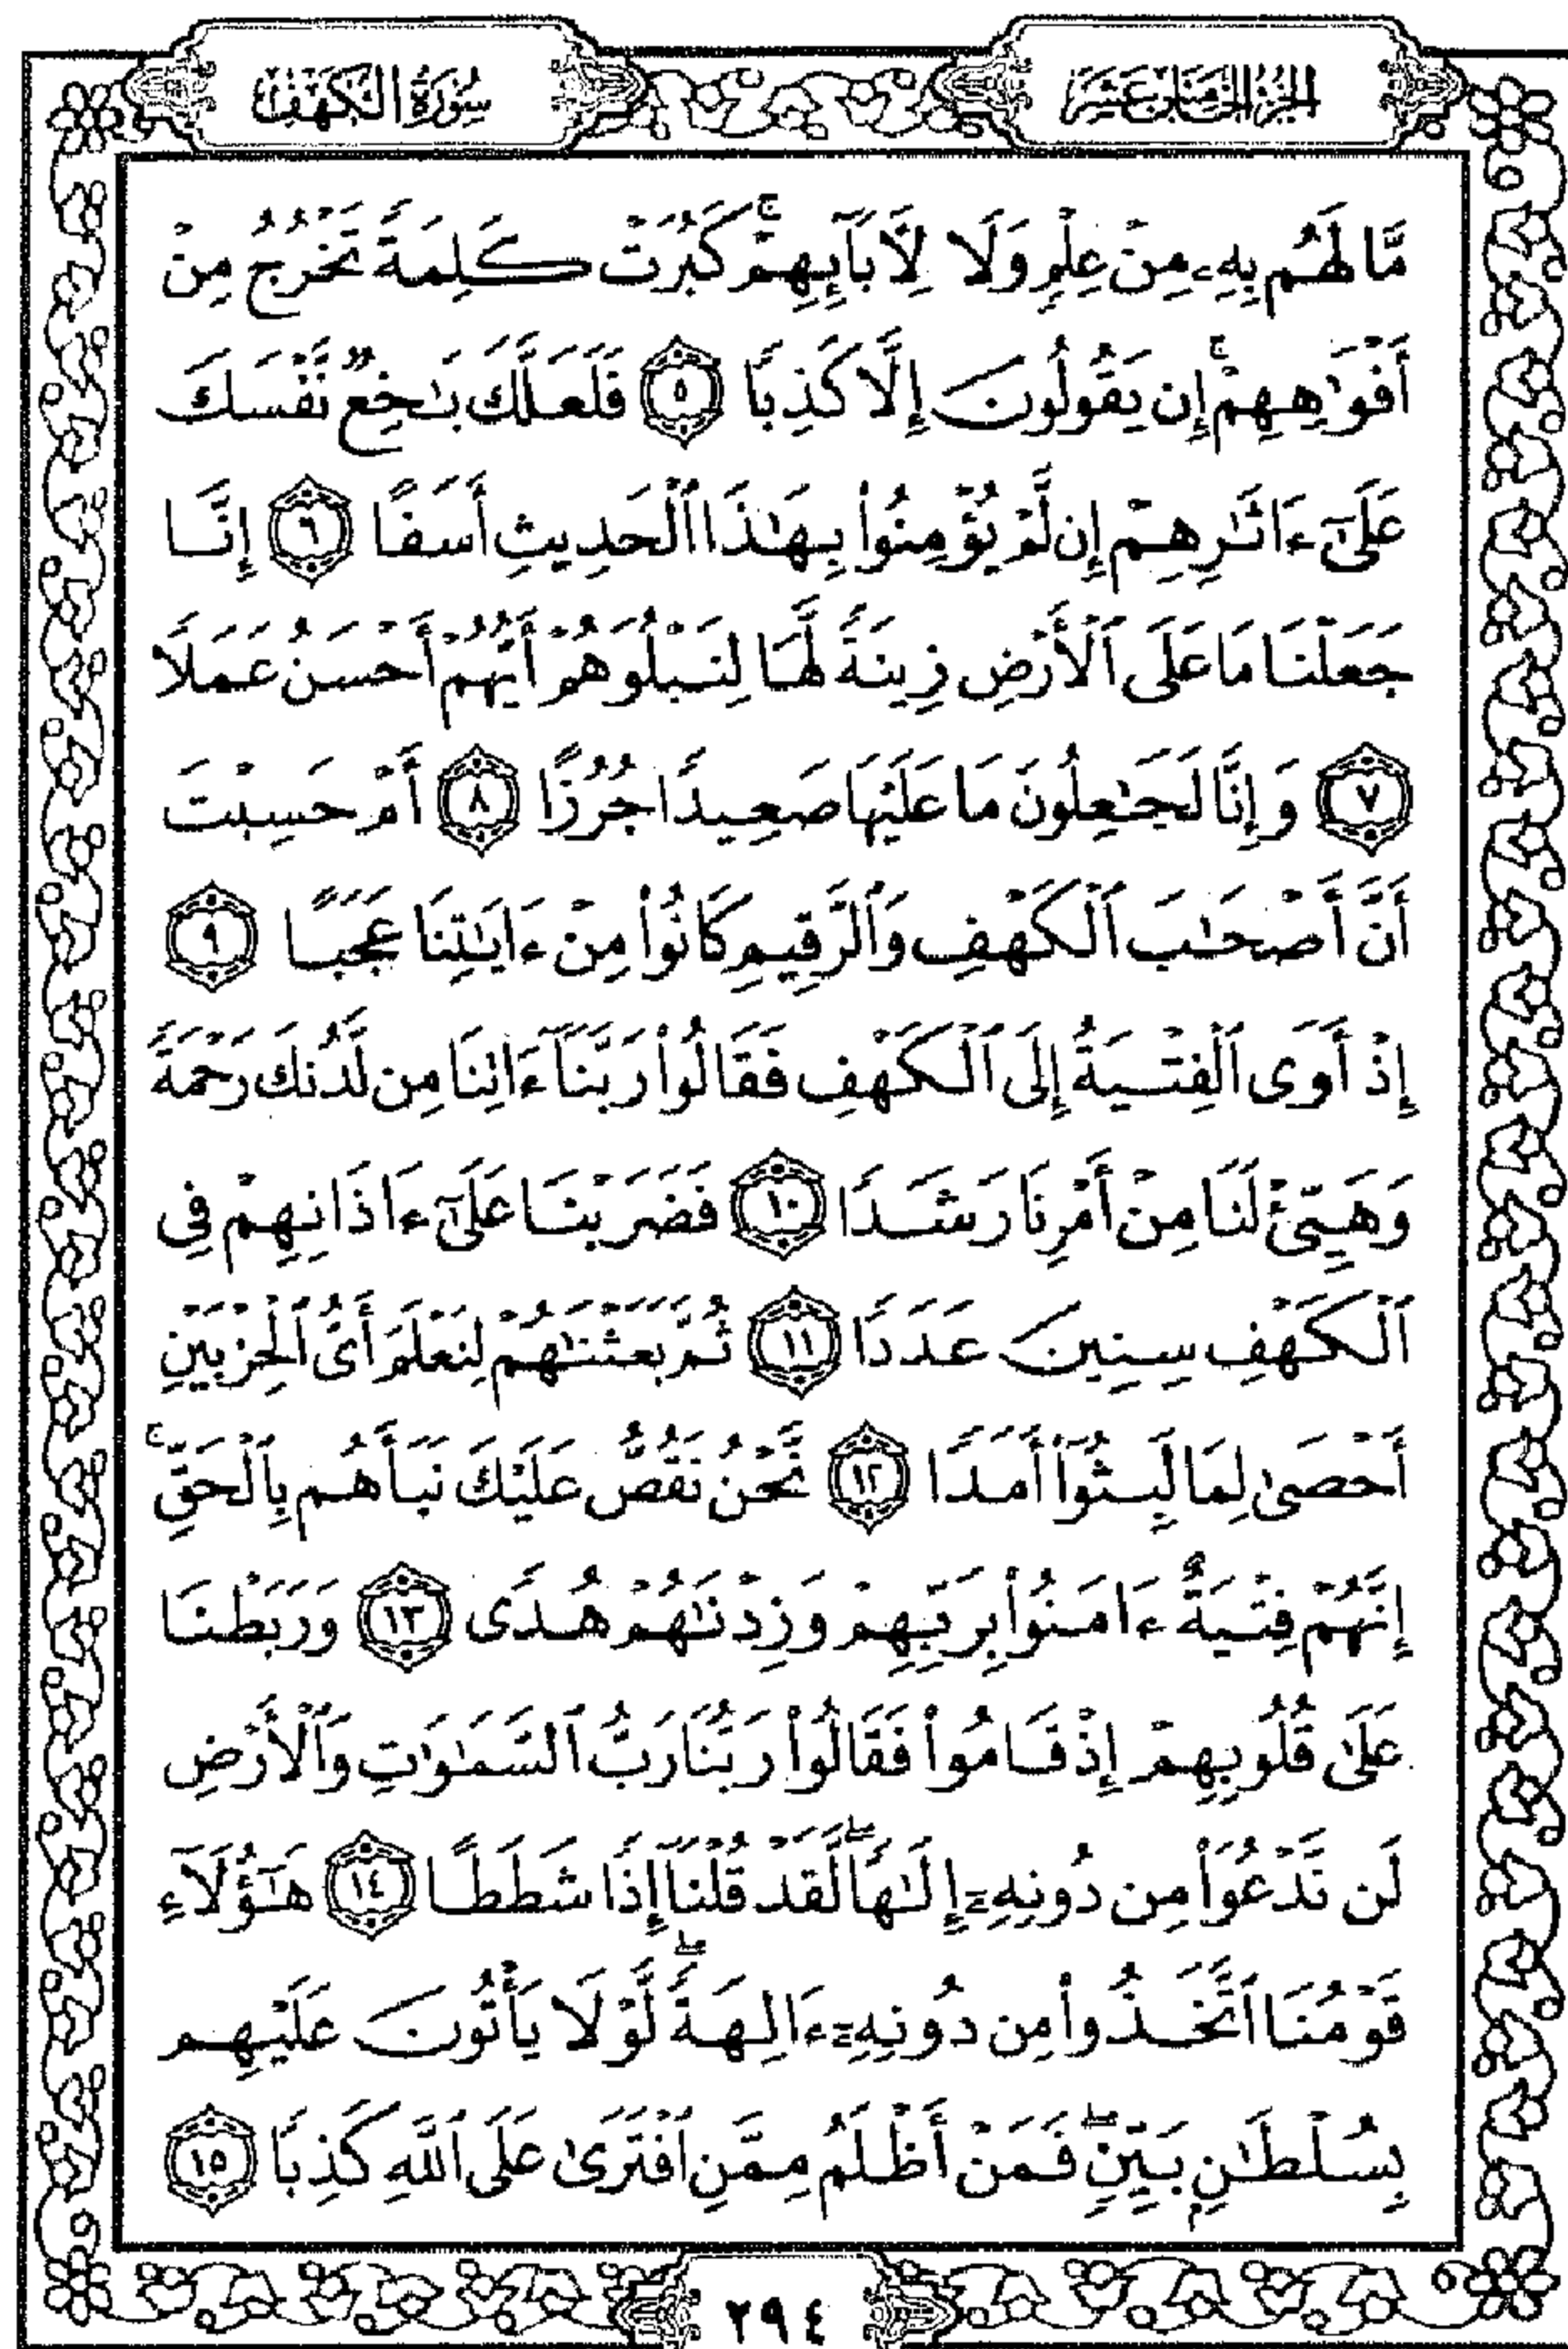 الجزء الخامس عشر
سورة الكهف
مَّا لَهُم بِهِۦ مِنْ عِلْمٍ وَلَا لِأَبَآئِهِمْ ۚ كَبُرَتْ كَلِمَةً تَخْرُجُ مِنْ
أَفْوَٰهِهِمْ ۚ إِن يَقُولُونَ إِلَّا كَذِبًا ٥ فَلَعَلَّكَ بَـٰخِعٌ نَّفْسَكَ
عَلَىٰٓ ءَاثَـٰرِهِمْ إِن لَّمْ يُؤْمِنُوا۟ بِهَـٰذَا ٱلْحَدِيثِ أَسَفًا ٦ إِنَّا
جَعَلْنَا مَا عَلَى ٱلْأَرْضِ زِينَةً لَّهَا لِنَبْلُوَهُمْ أَيُّهُمْ أَحْسَنُ عَمَلًا
٧ وَإِنَّا لَجَـٰعِلُونَ مَا عَلَيْهَا صَعِيدًا جُرُزًا ٨ أَمْ حَسِبْتَ
أَنَّ أَصْحَـٰبَ ٱلْكَهْفِ وَٱلرَّقِيمِ كَانُوا۟ مِنْ ءَايَـٰتِنَا عَجَبًا ٩
إِذْ أَوَى ٱلْفِتْيَةُ إِلَى ٱلْكَهْفِ فَقَالُوا۟ رَبَّنَآ ءَاتِنَا مِن لَّدُنكَ رَحْمَةً
وَهَيِّئْ لَنَا مِنْ أَمْرِنَا رَشَدًا ١٠ فَضَرَبْنَا عَلَىٰٓ ءَاذَانِهِمْ فِى
ٱلْكَهْفِ سِنِينَ عَدَدًا ١١ ثُمَّ بَعَثْنَـٰهُمْ لِنَعْلَمَ أَىُّ ٱلْحِزْبَيْنِ
أَحْصَىٰ لِمَا لَبِثُوٓا۟ أَمَدًا ١٢ نَّحْنُ نَقُصُّ عَلَيْكَ نَبَأَهُم بِٱلْحَقِّ ۚ
إِنَّهُمْ فِتْيَةٌ ءَامَنُوا۟ بِرَبِّهِمْ وَزِدْنَـٰهُمْ هُدًى ١٣ وَرَبَطْنَا
عَلَىٰ قُلُوبِهِمْ إِذْ قَامُوا۟ فَقَالُوا۟ رَبُّنَا رَبُّ ٱلسَّمَـٰوَٰتِ وَٱلْأَرْضِ
لَن نَّدْعُوَا۟ مِن دُونِهِۦٓ إِلَـٰهًا ۖ لَّقَدْ قُلْنَآ إِذًا شَطَطًا ١٤ هَـٰٓؤُلَآءِ
قَوْمُنَا ٱتَّخَذُوا۟ مِن دُونِهِۦٓ ءَالِهَةً ۖ لَّوْلَا يَأْتُونَ عَلَيْهِم
بِسُلْطَـٰنٍۭ بَيِّنٍ ۖ فَمَنْ أَظْلَمُ مِمَّنِ ٱفْتَرَىٰ عَلَى ٱللَّهِ كَذِبًا ١٥
٢٩٤